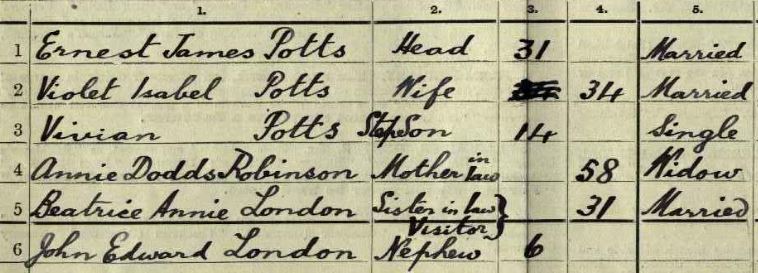 1. 2. 3. 4. 5.
1 Ernest James Potts Head 31 Married
2 Violet Isabel Potts Wife 34 Married
3 Vivian Potts StepSon 14 Single
4 Annie Dodds Robinson Mother in law 58 Widow
5 Beatrice Annie London Sister in law } Visitor 31 Married
6 John Edward London Nephew 6